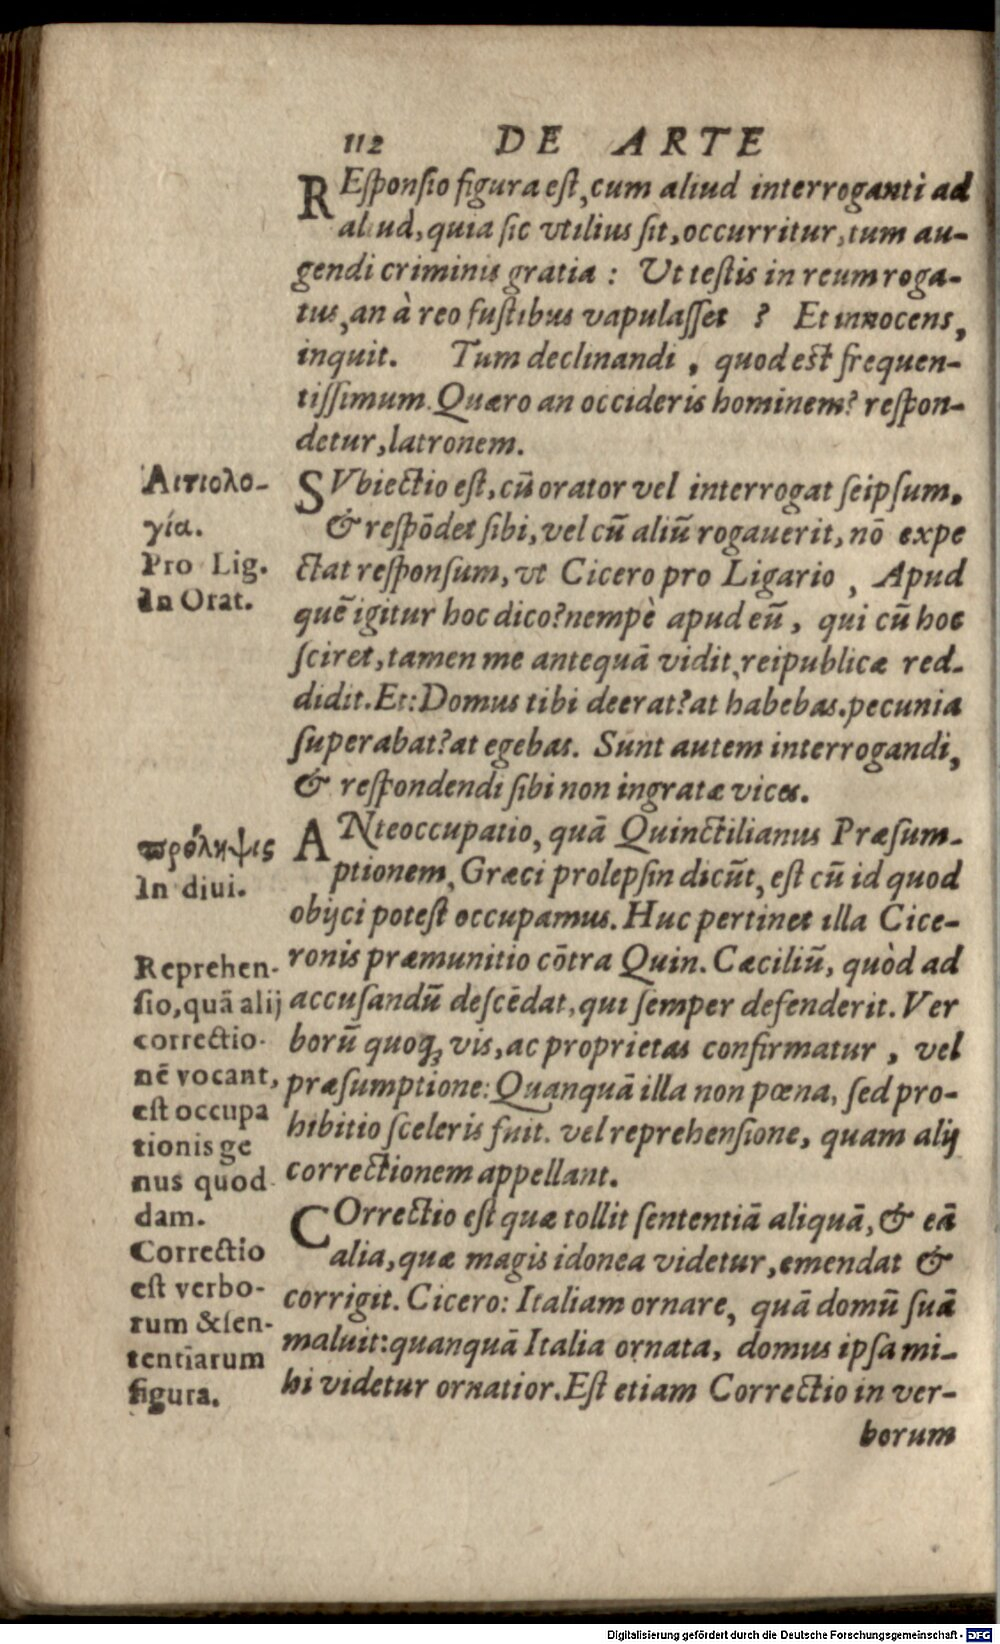 112 DE ARTE
REſponſio figura eſt, cum aliud interroganti ad
aliud, quia ſic vtilius ſit, occurritur, tum au-
gendi criminis gratia : Ut teſtis in reum roga-
tus, an à reo fuſtibus vapulaſſet ? Et innocens,
inquit. Tum declinandi, quod eſt frequen-
tiſſimum. Quæro an occideris hominem? reſpon-
detur, latronem.
Αιτιολο-
γία.
Pro Lig.
In Orat.
SVbiectio eſt, cũ orator vel interrogat ſeipſum,
& reſpōdet ſibi, vel cũ aliũ rogauerit, nō expe
ctat reſponſum, vt Cicero pro Ligario, Apud
quẽ igitur hoc dico? nempè apud eũ, qui cũ hoc
ſciret, tamen me antequã vidit, reipublicæ red-
didit. Et: Domus tibi deerat? at habebas. pecunia
ſuperabat? at egebas. Sunt autem interrogandi,
& reſpondendi ſibi non ingratæ vices.
πρόληψις
In diui.
ANteoccupatio, quã Quinctilianus Præſum-
ptionem, Græci prolepſin dicũt, eſt cũ id quod
obijci poteſt occupamus. Huc pertinet illa Cice-
ronis præmunitio cōtra Quin. Cæciliũ, quòd ad
accuſandũ deſcẽdat, qui ſemper defenderit. Ver
borũ quoq; vis, ac proprietas confirmatur, vel
præſumptione: Quanquã illa non pœna, ſed pro-
hibitio ſceleris fuit. vel reprehenſione, quam alij
correctionem appellant.
Reprehen-
ſio, quã alij
correctio-
nẽ vocant,
eſt occupa
tionis ge
nus quod
dam.
Correctio
eſt verbo-
rum & ſen-
tentiarum
figura.
COrrectio eſt quæ tollit ſententiã aliquã, & eã
alia, quæ magis idonea videtur, emendat &
corrigit. Cicero: Italiam ornare, quã domũ ſuã
maluit: quanquã Italia ornata, domus ipſa mi-
hi videtur ornatior. Eſt etiam Correctio in ver-
borum
Digitalisierung gefördert durch die Deutsche Forschungsgemeinschaft - DFG